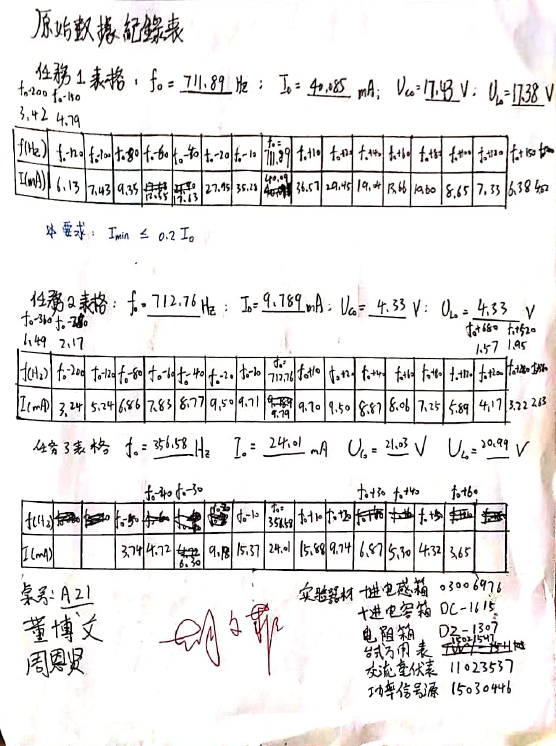 原始數據紀錄表
任務1表格: f₀= 711.89 Hz; I₀= 40.085 mA; U_C₀=17.43 V; U_L₀=17.38 V
f₀-200 f₀-150
3.42 4.79
f(Hz) f₀-120 f₀-100 f₀-80 f₀-60 f₀-40 f₀-20 f₀-10 f₀=711.89 f₀+10 f₀+20 f₀+40 f₀+60 f₀+80 f₀+100 f₀+120 f₀+150
I(mA) 6.13 7.43 9.35 12.65 27.95 35.28 40.09 36.57 29.45 13.66 8.65 7.33 6.38
要求: Imin ≤ 0.2 I₀
任務2表格: f₀= 712.76 Hz; I₀= 9.789 mA; U_C₀= 4.33 V; U_L₀= 4.33 V
f₀+680 f₀+520
1.57 1.95
2.17
f(Hz) f₀-200 f₀-120 f₀-80 f₀-60 f₀-40 f₀-20 f₀-10 f₀=712.76 f₀+10 f₀+20 f₀+40 f₀+60 f₀+80 f₀+120 f₀+200
I(mA) 3.24 5.24 6.86 7.83 8.77 9.50 9.71 9.79 9.70 9.50 8.87 8.06 7.25 5.89 4.17 3.22 2.63
任務3表格 f₀= 356.58 Hz I₀= 24.01 mA U_C₀= 21.03 V U_L₀= 20.99 V
f₀-40 f₀-30 f₀+30 f₀+40 f₀+60
f(Hz) f₀-50 f₀-20 f₀-10 f₀=356.58 f₀+10 f₀+20 f₀+50
I(mA) 3.74 4.72 6.30 9.18 15.37 24.01 15.88 9.74 6.87 5.30 4.32 3.65
桌号: A21
董博文
周恩贤
实验器材 十进电感箱 03006976
十进电容箱 DC-1615
电阻箱 DZ-1307
台式万用表
交流毫伏表 11023537
功率信号源 15030446